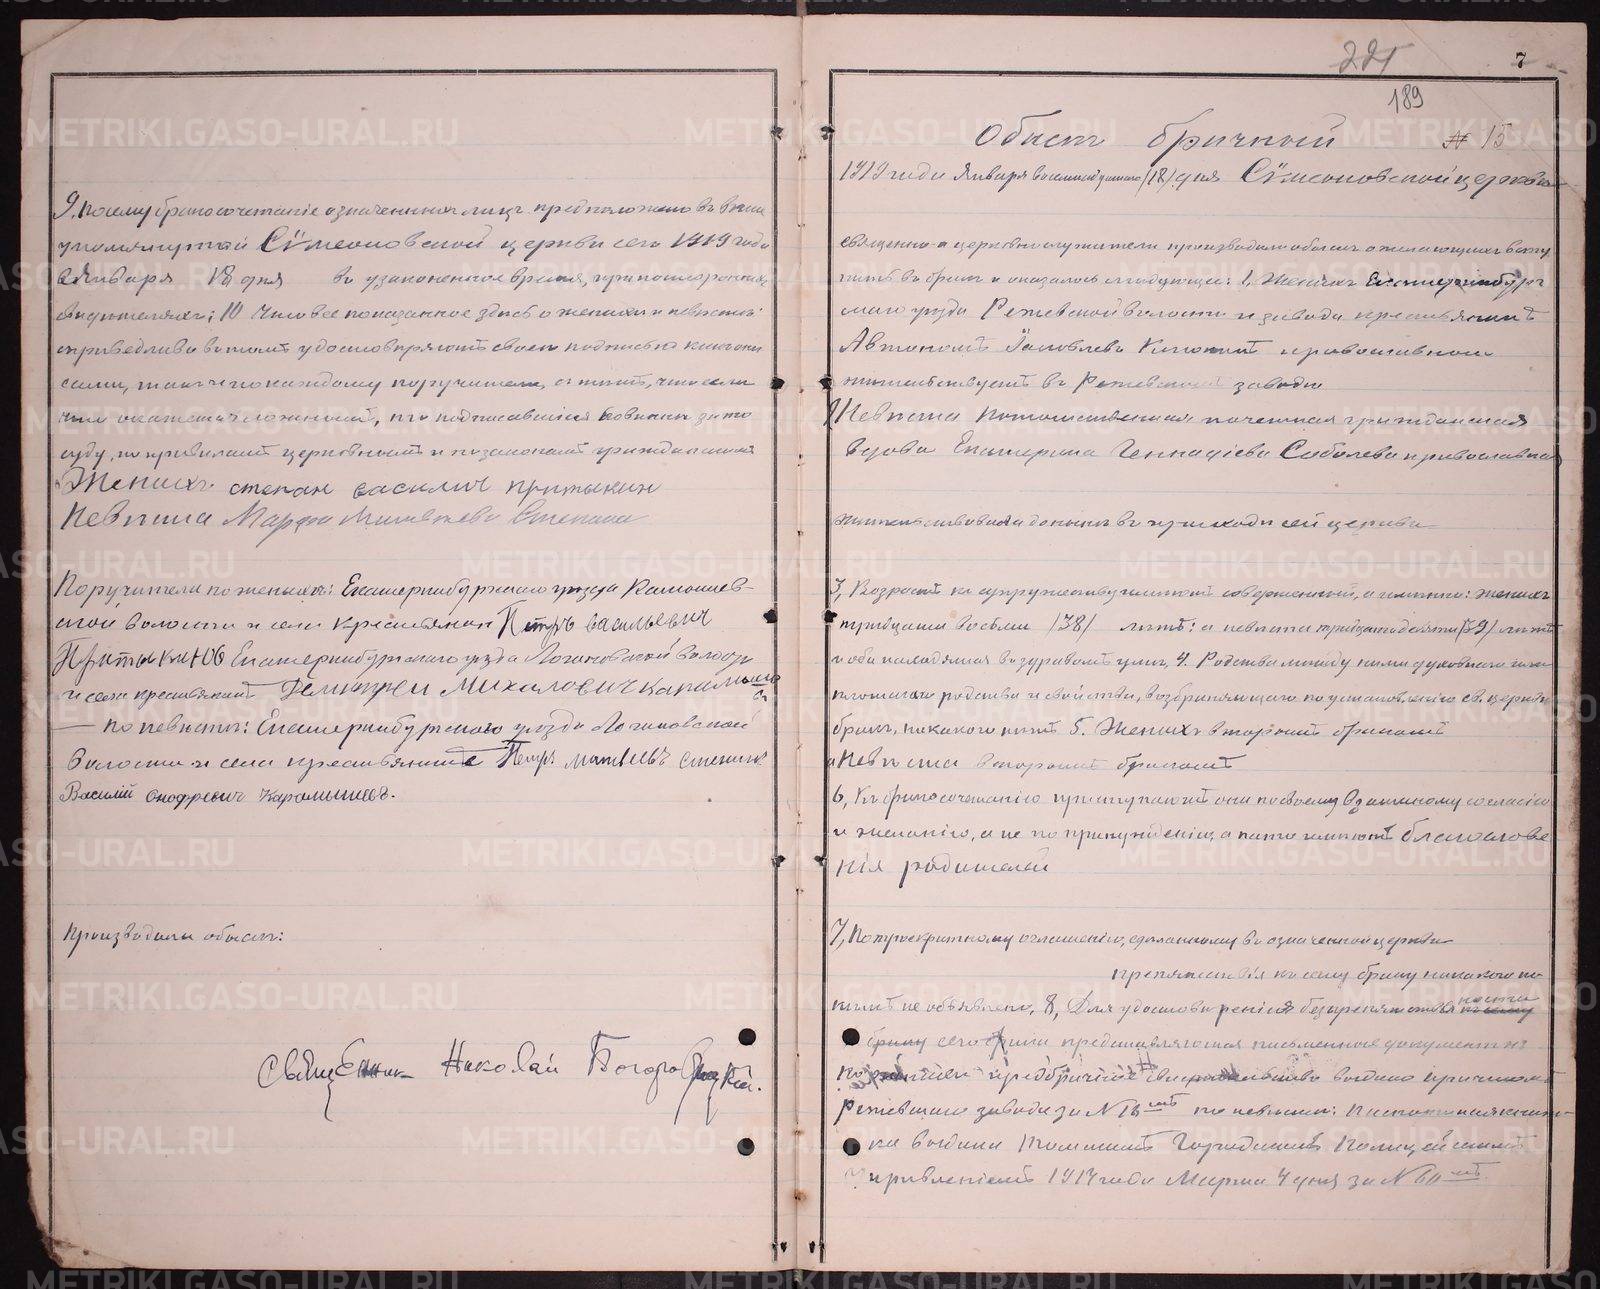 9, Посему бракосочетаніе означенныхъ лицъ предположено въ выше
упомянутой Сѵмеоновской церкви сего 1919 года
Января 18 дня въ узаконенное время, при постороннихъ
свидѣтеляхъ; 10 Что все показанное здѣсь о женихѣ и невѣстѣ
справедливо въ томъ удостовѣряютъ своею подписью какъ они
сами, такъ и по каждому поручители, въ томъ, что если
что окажется ложнымъ, то подписавшіеся повинны за то
суду, по правиламъ церковнымъ и по законамъ гражданскимъ
Женихъ степан василич притыкин
Невѣста Марфа Матвѣева
Поручители по женихѣ: Екатеринбургскаго уѣзда
ской волости и села Крестьянин Петръ васильевич
Притыкинъ Екатеринбургскаго уѣзда Логиновской волости
и села крестьянинъ Дмитреи Михалович
— По невѣстѣ: Екатеринбургскаго уѣзда Логиновской
Волости и села крестьянинъ Петръ Матвеевъ
Василій Онофревич Карамышевъ.
Производили обыскъ:
Священник Николай Богородицкій.
221
7
189
Обыскъ брачный № 15
1919 года Января восемнадцатаго /18/ дня Сѵмеоновской церкви
священно и церковнослужители производили обыскъ о желающихъ всту
пить въ бракъ и оказалось слѣдующее: 1, Женихъ Екатеринбург
скаго уѣзда Режевской волости и завода крестьянинъ
Автономъ Яковлевъ православнаго
жительствуетъ въ Режевскомъ заводѣ
Невѣста Потомственная почетная гражданская
вдова Екатерина Геннадіева Соболева православная
жительствовала донынѣ въ приходѣ сей церкви
3, Возрастъ къ супружеству имѣютъ совершенный, а именно: женихъ
тридцати восьми /38/ лѣтъ: а невѣста тридцати девяти /39/ лѣтъ
и оба находятся въ здравомъ умѣ, 4. Родства между ними духовнаго или
плотскаго родства и свойства, возбраняющаго по установленію св. церкви
бракъ, никакого нѣтъ 5. Женихъ вторымъ бракомъ
Невѣста вторымъ бракомъ
6, Къ бракосочетанію приступаютъ они по своему взаимному согласію
и желанію, а не по принужденію, а на то имѣютъ благослове
нія родителей
7, По троекратному оглашенію, сдѣланному въ означенной церкви
препятствія къ сему браку никакого не
кѣмъ не объявлено, 8, Для удостовѣренія безпрепятственности
браку сего представляются письменные документы
предбрачное свидѣтельство выдано причтомъ
Режевскаго завода за № 18 по невѣстѣ: Паспортная книж
ка выдана Томскимъ Городскимъ Полицейскимъ
Управленіемъ 1914 года Марта 4 дня за №
METRIKI.GASO-URAL.RU